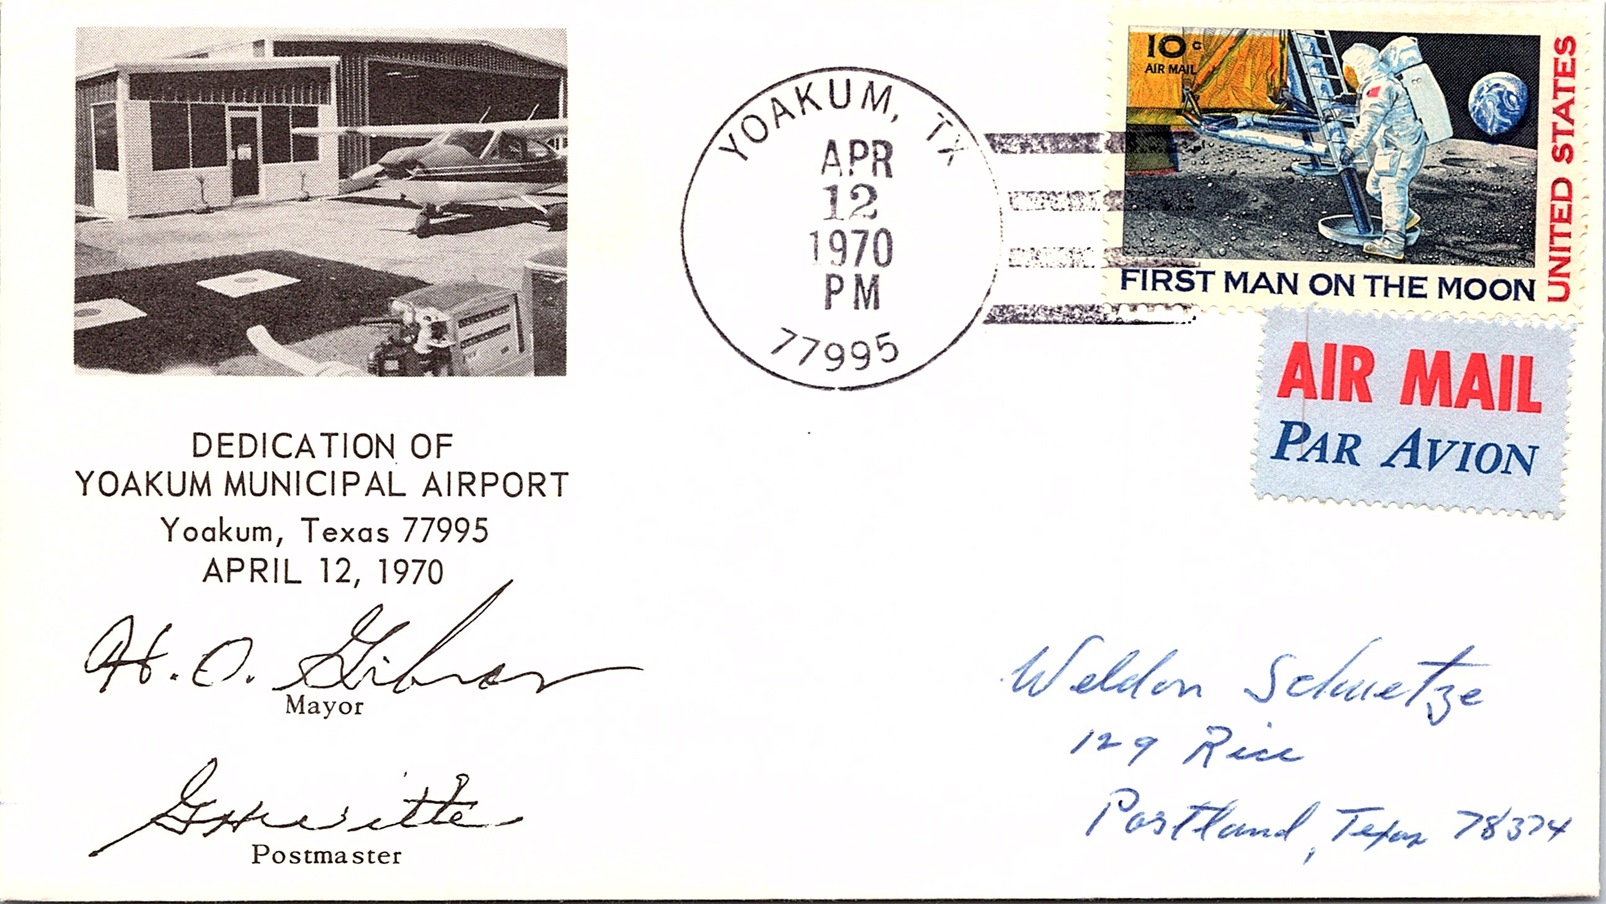 DEDICATION OF
YOAKUM MUNICIPAL AIRPORT
Yoakum, Texas 77995
APRIL 12, 1970
H. O. Gibson
Mayor
Postmaster
YOAKUM, TX
APR
12
1970
PM
77995
10c
AIR MAIL
UNITED STATES
FIRST MAN ON THE MOON
AIR MAIL
PAR AVION
Weldon Schuetze
129 Rice
Portland, Texas 78374